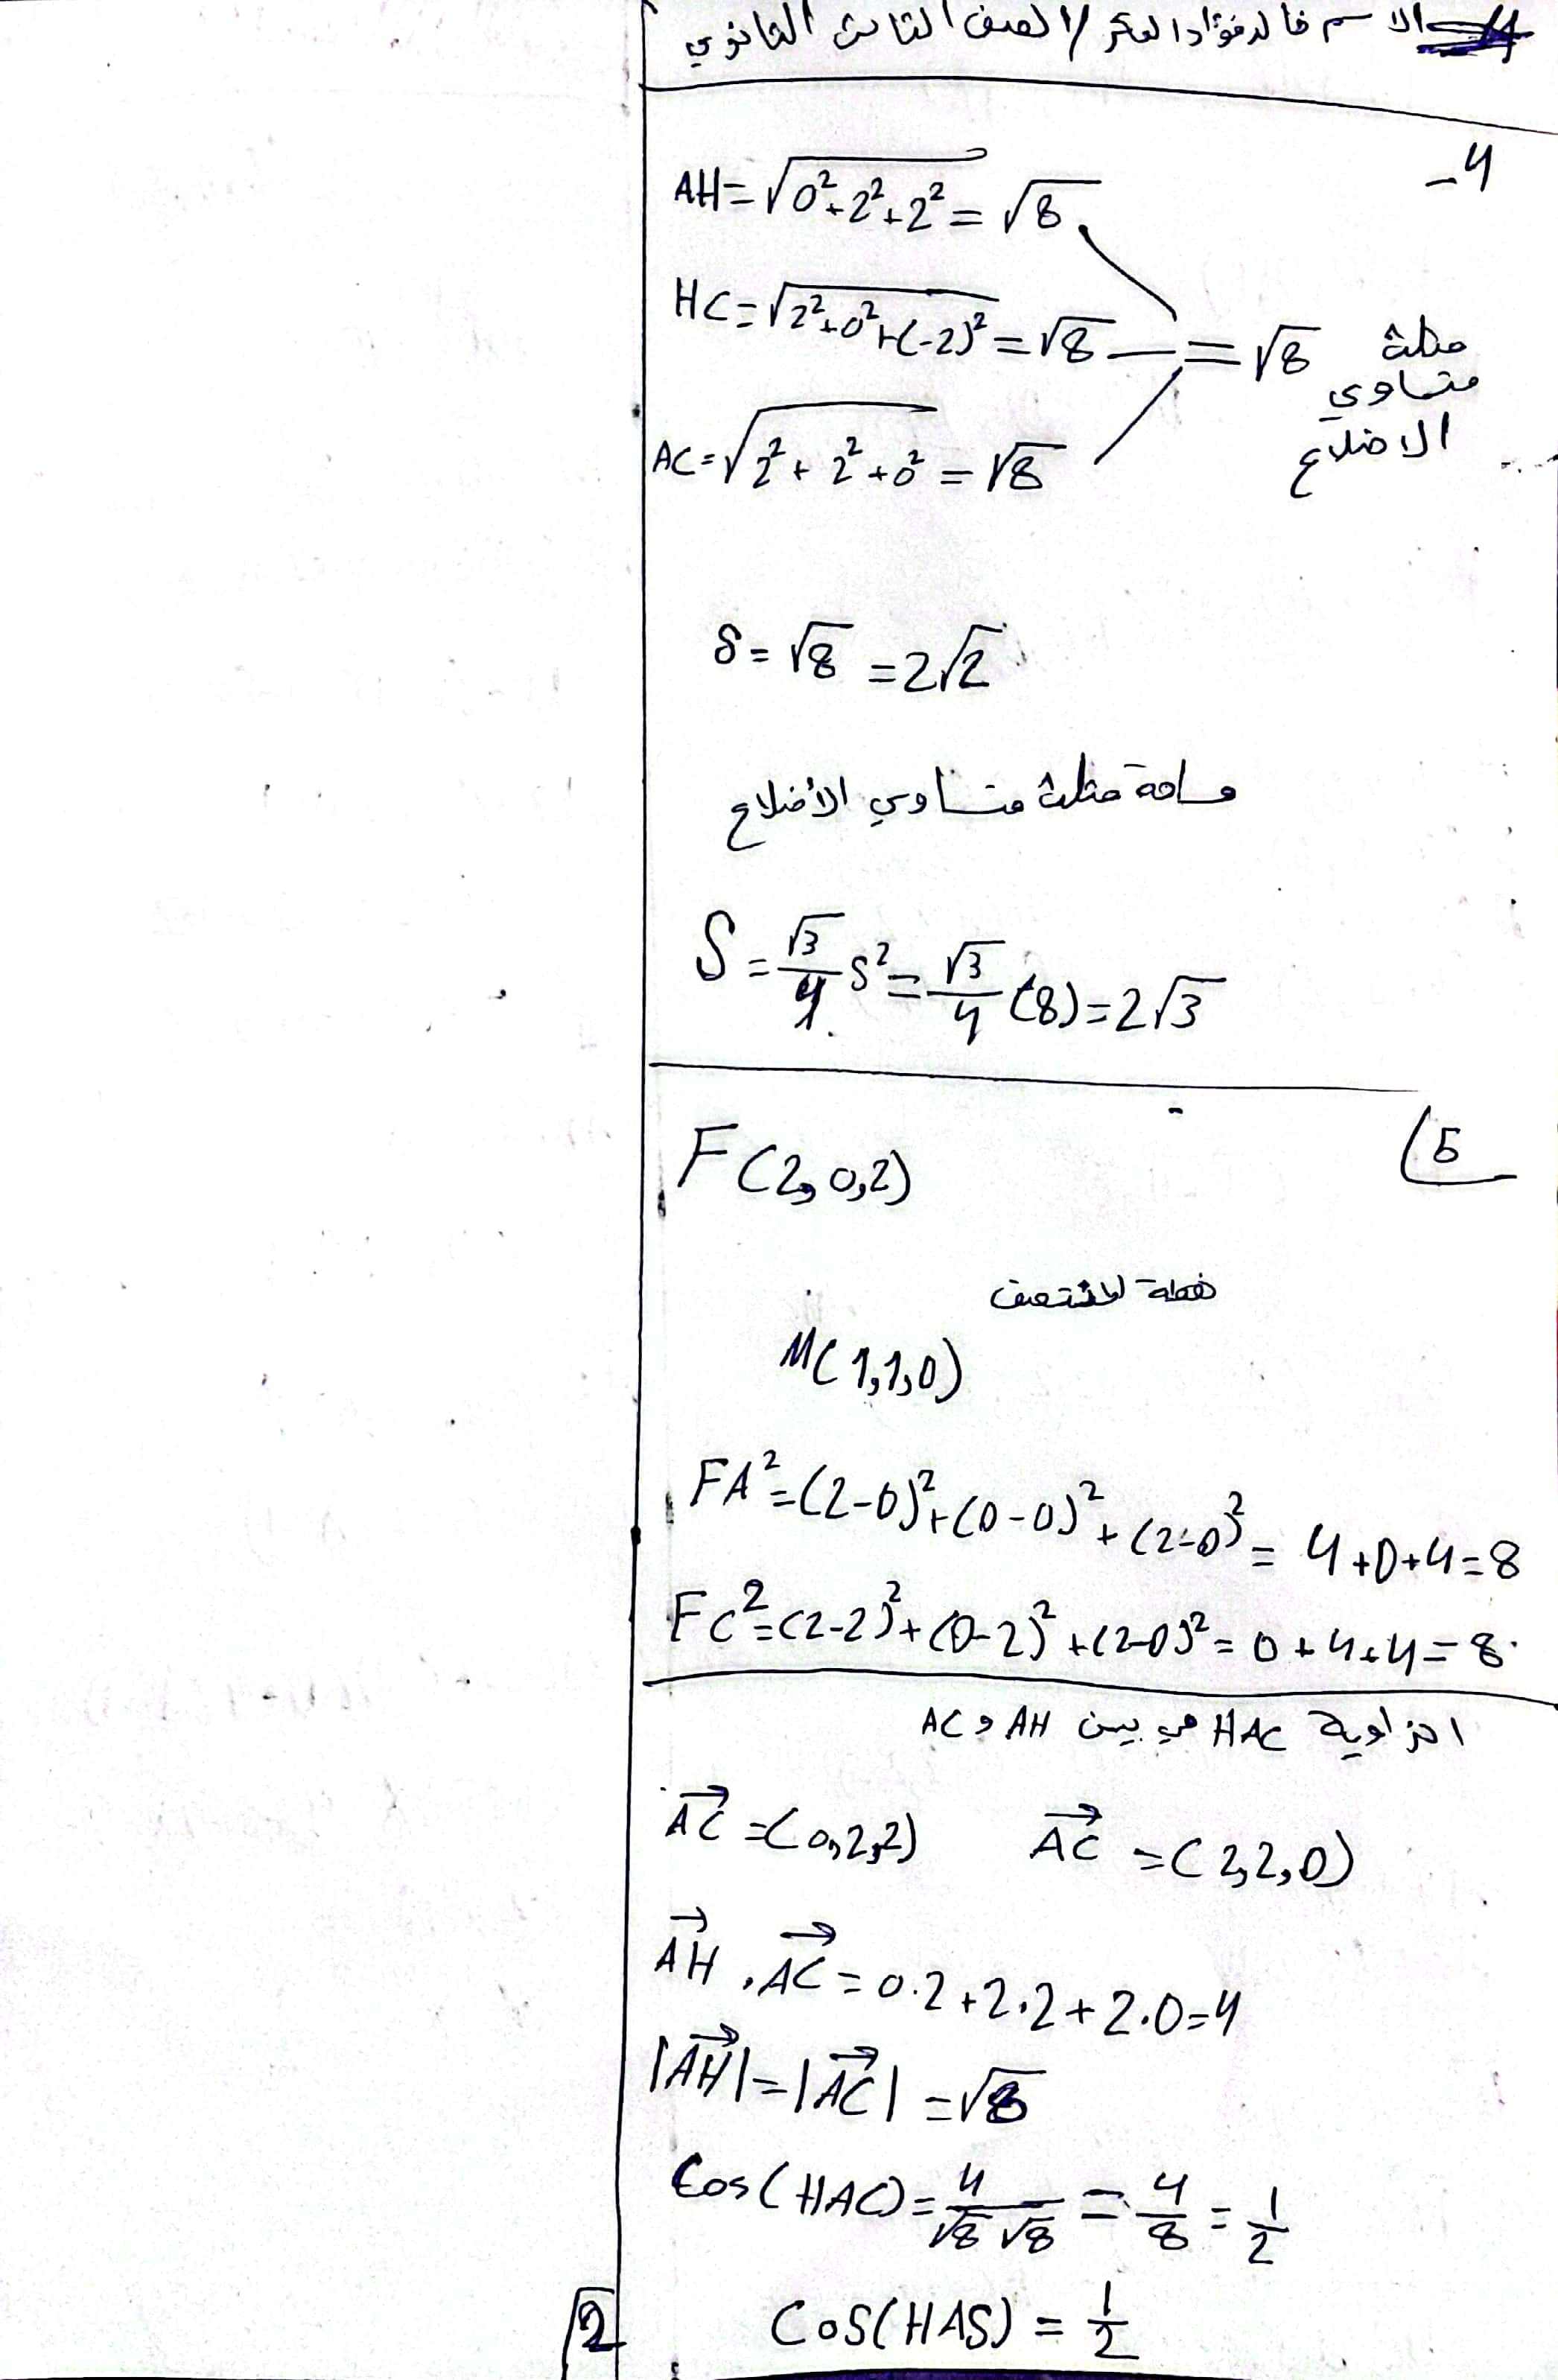 الاسم خالد فؤاد العكر / الصف الثالث الثانوي
4-
AH = √0²+2²+2² = √8
HC = √2²+0²+(-2)² = √8 = √8 مثلث متساوي الاضلاع
AC = √2²+2²+0² = √8
S = √8 = 2√2
مساحة مثلث متساوي الأضلاع
S = √3/4 S² = √3/4 (8) = 2√3
5)
F(2,0,2)
نقطة المنتصف
M(1,1,0)
FA² = (2-0)²+(0-0)²+(2-0)² = 4+0+4=8
FC² = (2-2)²+(0-2)²+(2-0)² = 0+4+4=8
الزاوية HAC هي بين AH و AC
AC = (0,2,2) AC = (2,2,0)
AH . AC = 0.2+2.2+2.0=4
|AH| = |AC| = √8
Cos(HAC) = 4/√8 √8 = 4/8 = 1/2
Cos(HAS) = 1/2
2